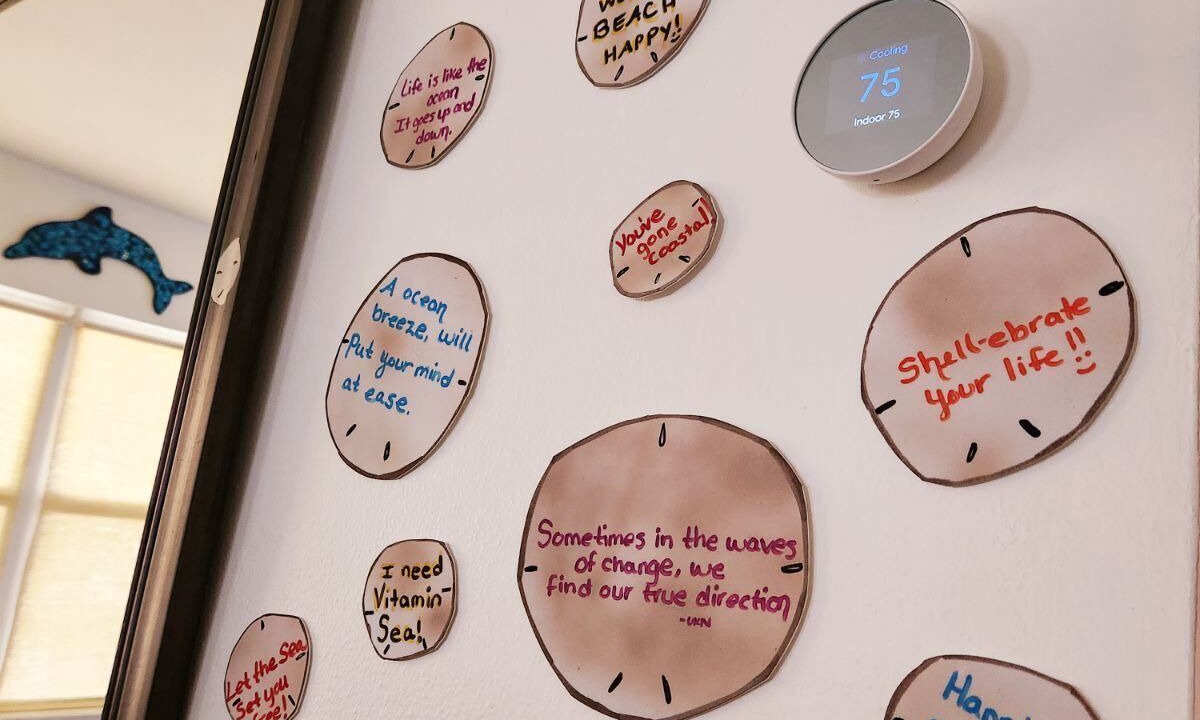 BEACH
HAPPY!
Life is like the
ocean
It goes up and
down.
Cooling
75
Indoor 75
You've
gone
coastal!
A ocean
breeze, will
Put your mind
at ease.
Shell-ebrate
your life!!
Sometimes in the waves
of change, we
find our true direction
-UKN
I need
Vitamin
Sea!
Let the Sea
Set you